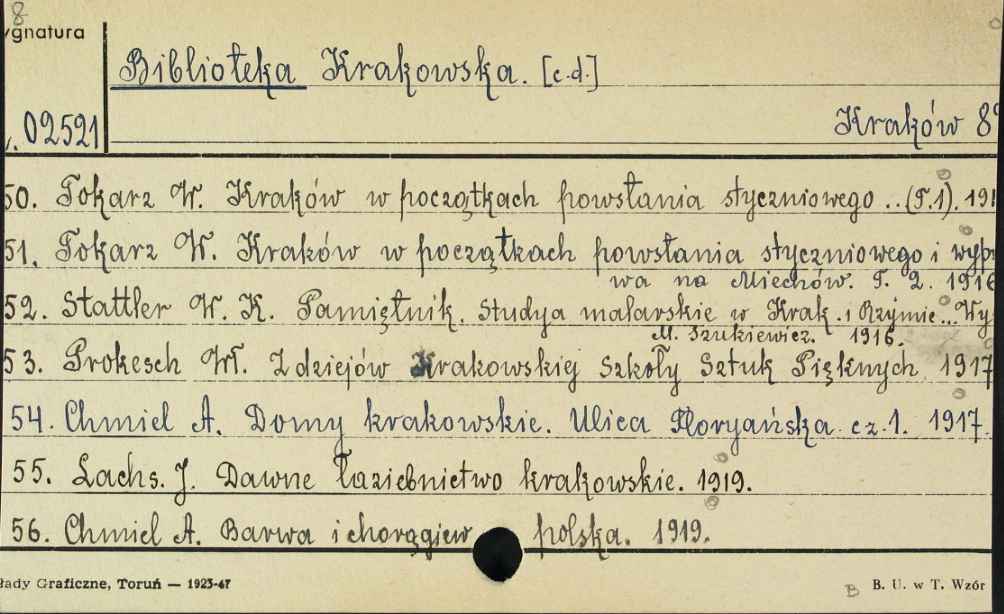 8
ygnatura
Biblioteka Krakowska. [c.d.]
02521
Kraków 8°
50. Tokarz W. Kraków w początkach powstania styczniowego..(T.1). 191
51. Tokarz W. Kraków w początkach powstania styczniowego i wypr
wa na Miechów. T. 2. 1916
52. Stattler W. K. Pamiętnik. Studya malarskie w Krak. i Rzymie... Wy
M. Szukiewicz. 1916.
53. Prokesch Wł. Z dziejów Krakowskiej Szkoły Sztuk Pięknych. 1917
54. Chmiel A. Domy krakowskie. Ulica Floryańska cz.1. 1917.
55. Lachs. J. Dawne łaziebnictwo krakowskie. 1919.
56. Chmiel A. Barwa i chorągiew polska. 1919.
łady Graficzne, Toruń — 1923-47
B B. U. w T. Wzór